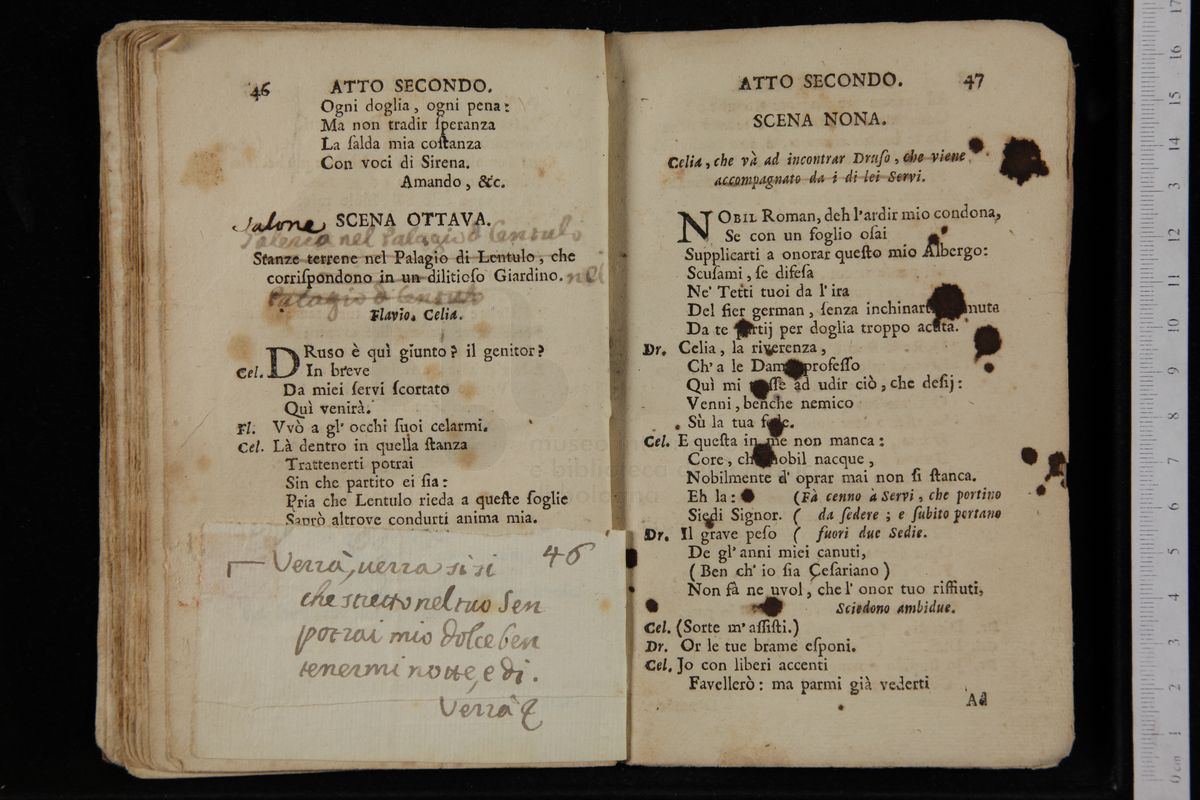 46 ATTO SECONDO.
Ogni doglia, ogni pena:
Ma non tradir ſperanza
La ſalda mia coſtanza
Con voci di Sirena.
Amando, &c.
Salone SCENA OTTAVA.
nel Palagio di Lentulo
Stanze terrene nel Palagio di Lentulo, che
corriſpondono in un dilitioſo Giardino. nel
Palagio di Lentulo
Flavio. Celia.
DRuso è quì giunto? il genitor?
Cel. In breve
Da miei ſervi ſcortato
Quì venirà.
Fl. Vvò a gl' occhi ſuoi celarmi.
Cel. Là dentro in quella ſtanza
Trattenerti potrai
Sin che partito ei ſia:
Pria che Lentulo rieda a queſte ſoglie
Saprò altrove condurti anima mia.
Verrà, uerra si si 46
che stretto nel tuo Sen
potrai mio dolce ben
tenermi notte, e dì.
Verrà &
ATTO SECONDO. 47
SCENA NONA.
Celia, che và ad incontrar Druſo, che viene
accompagnato da i di lei Servi.
NOBIL Roman, deh l'ardir mio condona,
Se con un foglio oſai
Supplicarti a onorar queſto mio Albergo:
Scuſami, ſe difeſa
Ne' Tetti tuoi da l' ira
Del fier german, ſenza inchinarti
Da te partij per doglia troppo acuta.
Dr. Celia, la riverenza,
Ch' a le Dame profeſſo
Quì mi ad udir ciò, che deſij:
Venni, benche nemico
Sù la tua fede.
Cel. E queſta in me non manca:
Core, che nobil nacque,
Nobilmente d' oprar mai non ſi ſtanca.
Eh la: (Fà cenno à Servi, che portino
Siedi Signor. ( da ſedere; e ſubito portano
Dr. Il grave peſo ( fuori due Sedie.
De gl' anni miei canuti,
(Ben ch' io ſia Ceſariano)
Non fà ne uvol, che l' onor tuo riffiuti,
Sciedono ambidue.
Cel. (Sorte m' aſſiſti.)
Dr. Or le tue brame eſponi.
Cel. Jo con liberi accenti
Favellerò: ma parmi già vederti
Ad